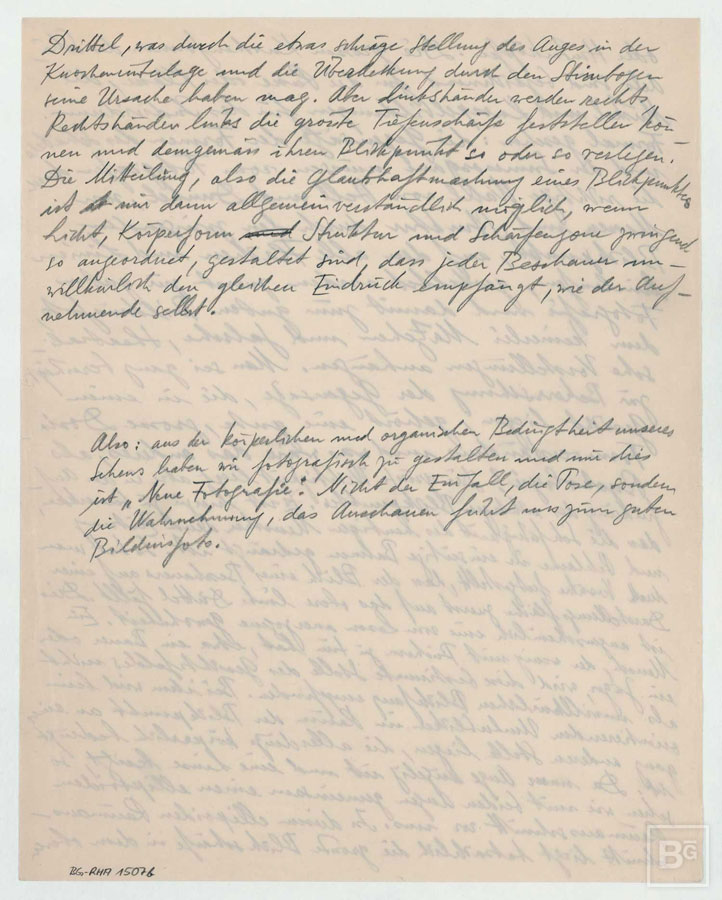 Drittel, was durch die etwas schräge Stellung des Auges in der
Knochenunterlage und die Überdeckung durch den Stirnbogen
seine Ursache haben mag. Aber Linkshänder werden rechts
Rechtshänder links die grösste Tiefenschärfe feststellen kön-
nen und demgemäss ihren Blickpunkt so oder so verlegen.
Die Mitteilung, also die Glaubhaftmachung eines Blickpunktes
ist nur dann allgemeinverständlich möglich, wenn
Licht, Körperform und Struktur und Schärfenzone zwingend
so angeordnet, gestaltet sind, dass jeder Beschauer un-
willkürlich den gleichen Eindruck empfängt, wie der Auf-
nehmende selbst.
Also: aus der körperlichen und organischen Bedingtheit unseres
Sehens haben wir fotografisch zu gestalten und nur dies
ist „Neue Fotografie". Nicht der Einfall, die Pose, sondern
die Wahrnehmung, das Anschauen führt uns zum guten
Bildnisfoto.
BG-RHA 15076
BG